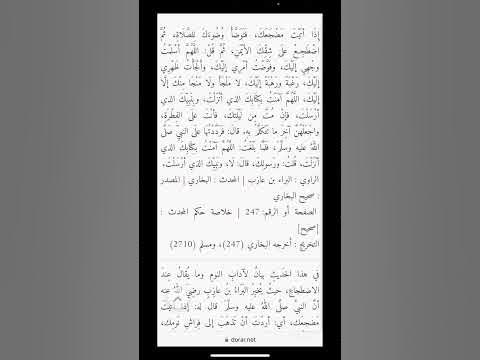 إذَا أتَيْتَ مَضْجَعَكَ، فَتَوَضَّأْ وُضُوءَكَ لِلصَّلَاةِ، ثُمَّ
اضْطَجِعْ علَى شِقِّكَ الأيْمَنِ، ثُمَّ قُلْ: اللَّهُمَّ أسْلَمْتُ
وجْهِي إلَيْكَ، وفَوَّضْتُ أمْرِي إلَيْكَ، وأَلْجَأْتُ ظَهْرِي
إلَيْكَ، رَغْبَةً ورَهْبَةً إلَيْكَ، لا مَلْجَأَ ولَا مَنْجَا مِنْكَ إلَّا
إلَيْكَ، اللَّهُمَّ آمَنْتُ بكِتَابِكَ الذي أنْزَلْتَ، وبِنَبِيِّكَ الذي
أرْسَلْتَ، فَإِنْ مُتَّ مِن لَيْلَتِكَ، فأنْتَ علَى الفِطْرَةِ،
واجْعَلْهُنَّ آخِرَ ما تَتَكَلَّمُ بهِ. قالَ: فَرَدَّدْتُهَا علَى النبيِّ صَلَّى
اللهُ عليه وسلَّمَ، فَلَمَّا بَلَغْتُ: اللَّهُمَّ آمَنْتُ بكِتَابِكَ الذي
أنْزَلْتَ، قُلتُ: ورَسولِكَ، قالَ: لَا، ونَبِيِّكَ الذي أرْسَلْتَ.
الراوي : البراء بن عازب | المحدث : البخاري | المصدر
: صحيح البخاري
الصفحة أو الرقم: 247 | خلاصة حكم المحدث :
[صحيح]
التخريج : أخرجه البخاري (247)، ومسلم (2710)
في هذا الحَديثِ بيانٌ لآدابِ النومِ وما يُقالُ عِندَ
الاضطِجاعِ، حيثُ يُخبِرُ البَرَاءُ بنُ عازِبٍ رضِيَ اللهُ عنه
أنَّ النبيَّ صلَّى اللهُ عليه وسلَّمَ قال له: إذا أتيْتَ
مَضجَعَك، أي: أردْتَ أنْ تَذهَبَ إلى فِراشِ نَومِك،
dorar.net